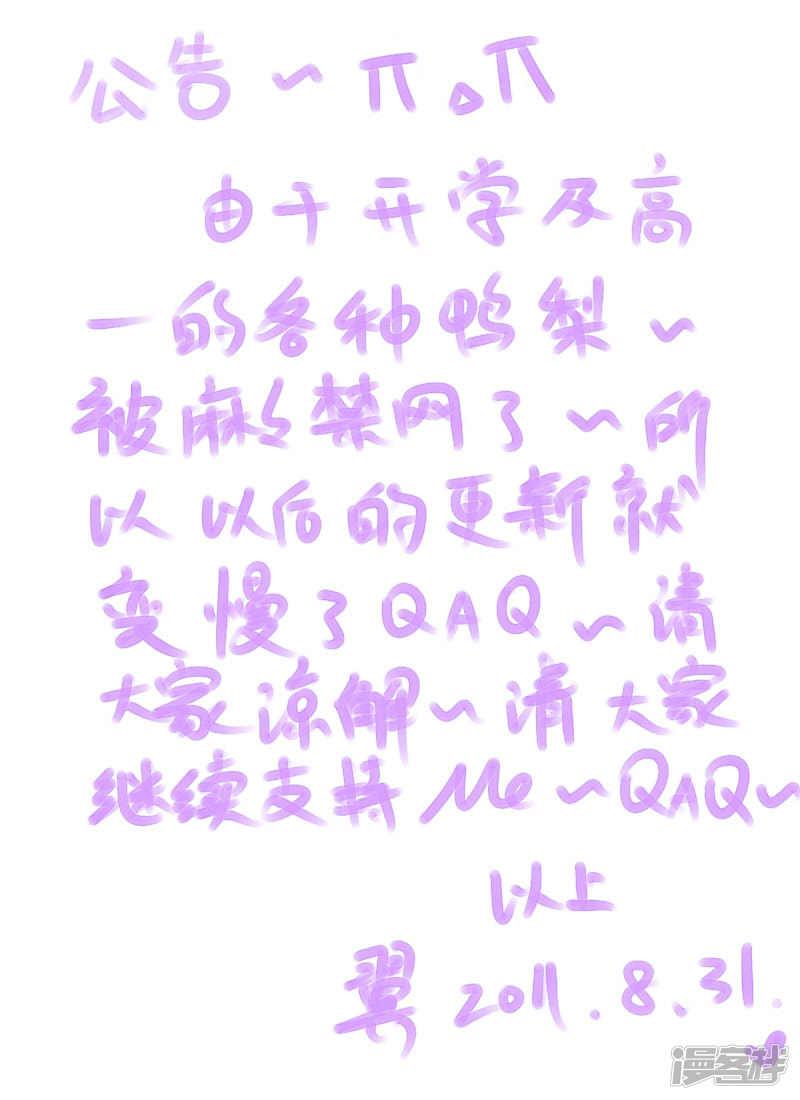 公告~π△π
由于开学及高
一的各种鸭梨~
被麻麻禁网了~所
以以后的更新就
变慢了QAQ~请
大家谅解~请大家
继续支持Me~QAQ~
以上
翼 2011.8.31.
漫客栈